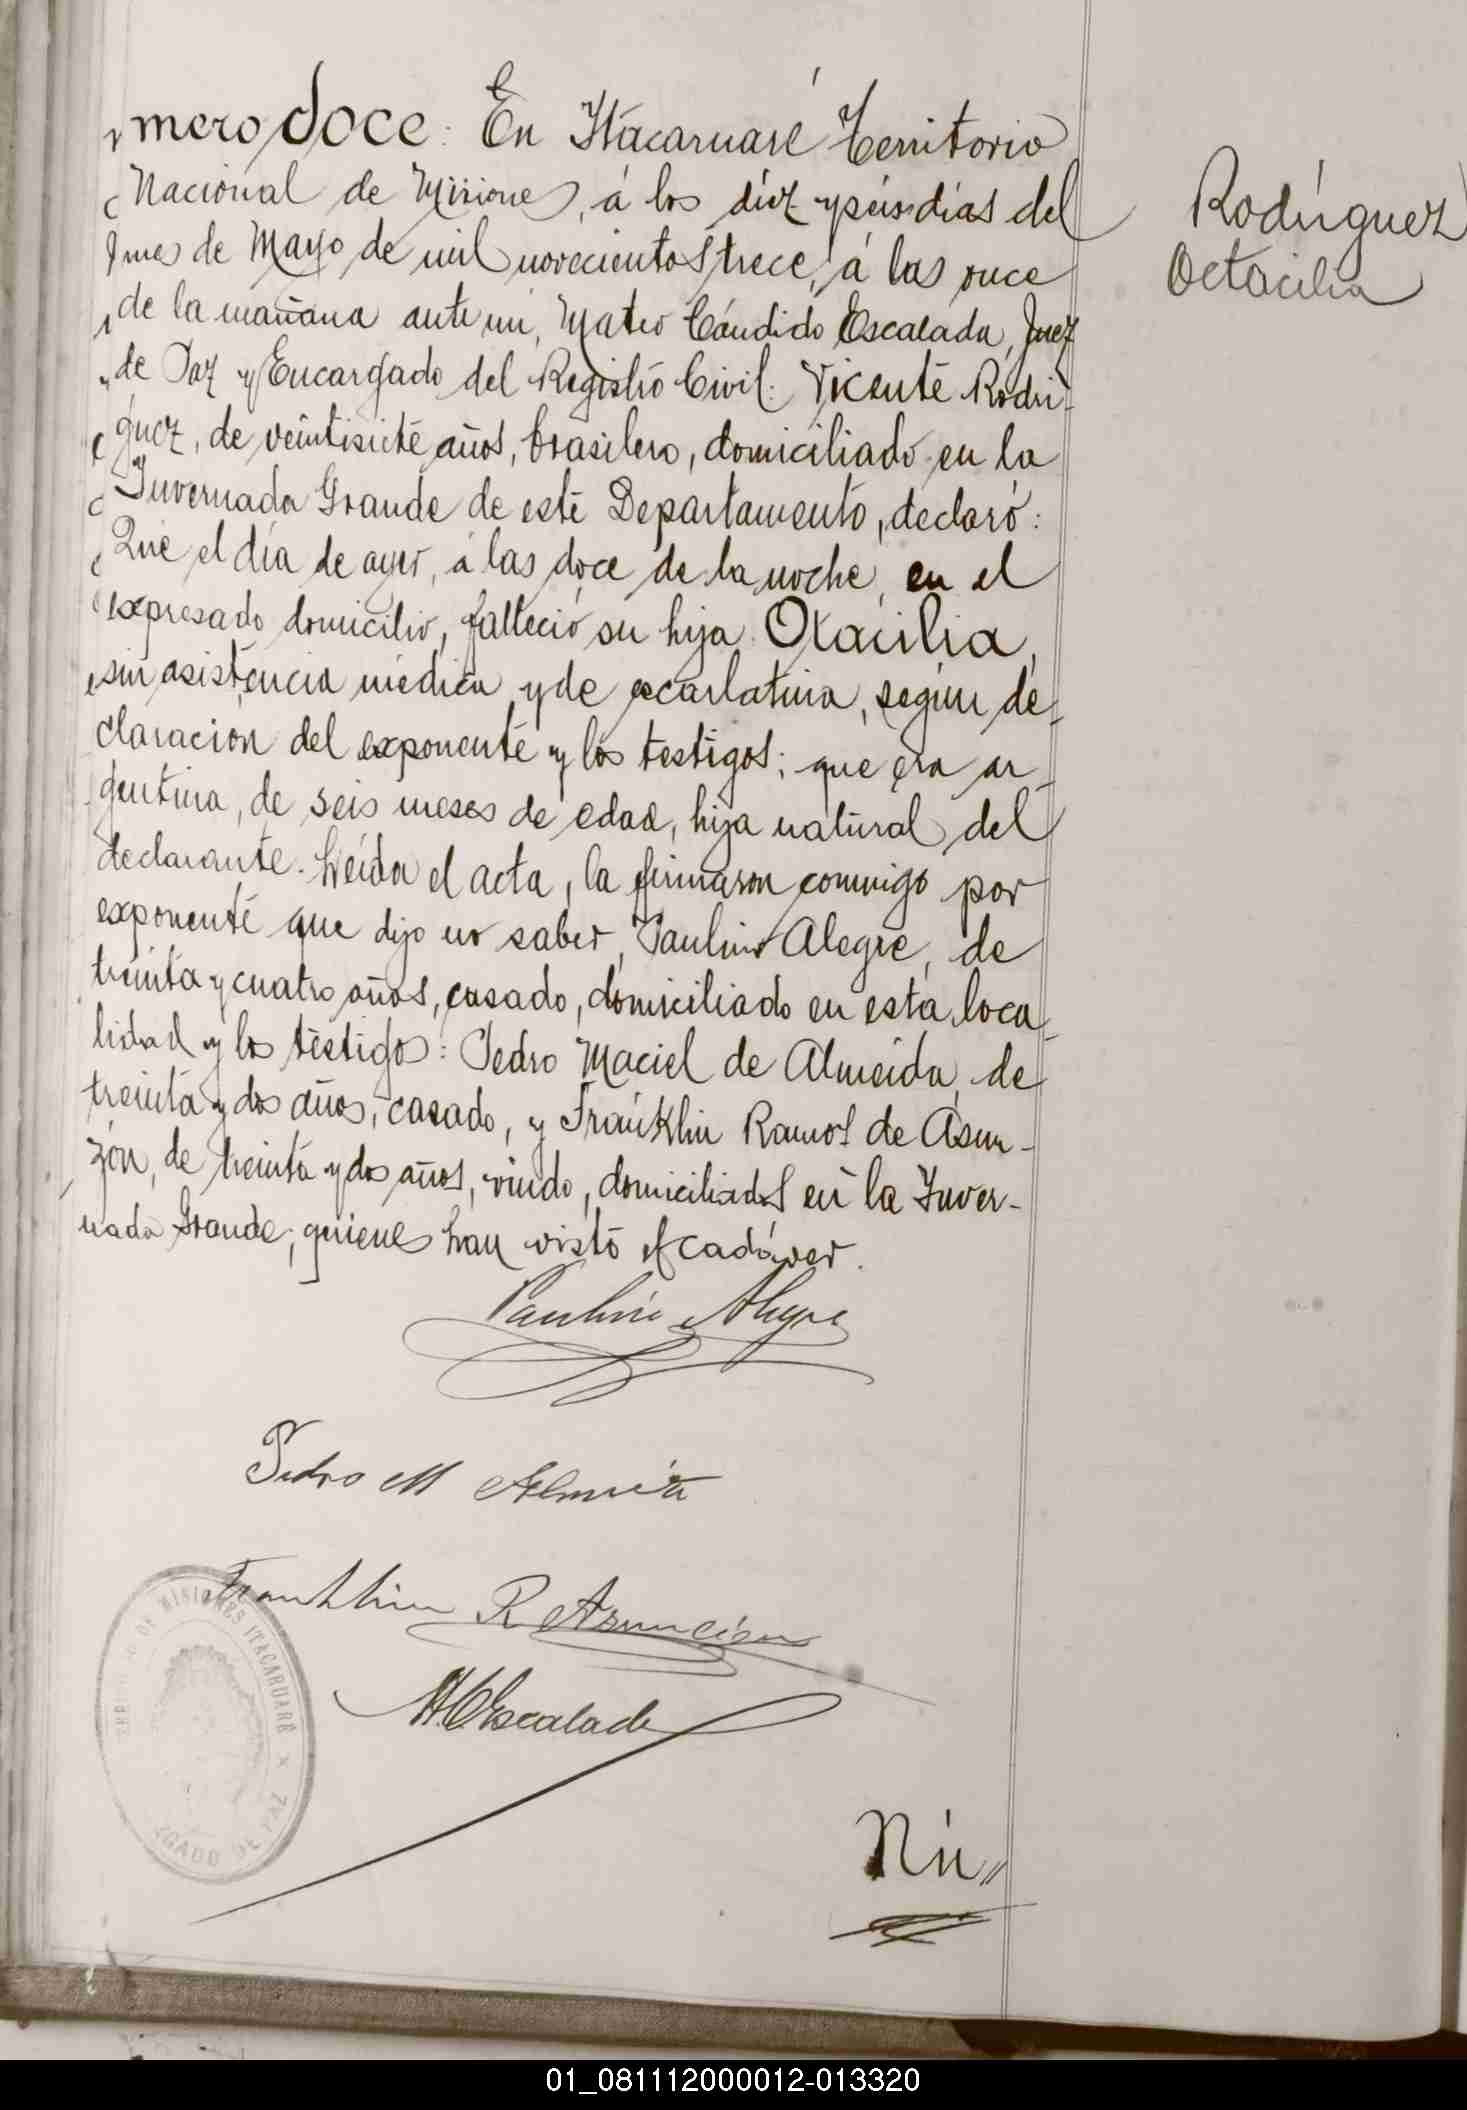 mero doce: En Itacaruaré Territorio
Nacional de Misiones, á los diez y seis días del
mes de Mayo de mil novecientos trece, á las once
de la mañana ante mi, Mateo Cándido Escalada, Juez
de Paz y Encargado del Registro Civil: Vicente Rodri-
guez, de veintisiete años, brasilero, domiciliado en la
Invernada Grande de este Departamento, declaró:
Que el día de ayer, á las doce de la noche, en el
expresado domicilio, falleció su hija Otacilia,
sin asistencia médica y de escarlatina, según de-
claracion del exponente y los testigos; que era ar-
gentina, de seis meses de edad, hija natural del
declarante. Leída el acta, la firmaron conmigo por
exponente que dijo no saber, Paulino Alegre, de
treinta y cuatro años, casado, domiciliado en esta loca-
lidad y los testigos: Pedro Maciel de Almeida, de
treinta y dos años, casado, y Franklin Ramos de Asun-
zón, de treinta y dos años, viudo, domiciliados en la Inver-
nada Grande, quienes han visto el cadáver.
Rodríguez
Octacilia
Paulino Alegre
Pedro M Almeida
Franklin R Asuncion
M.C.Escalada
DE MISIONES ITACARUARÉ x
JUZGADO DE PAZ
Nú//
01_081112000012-013320